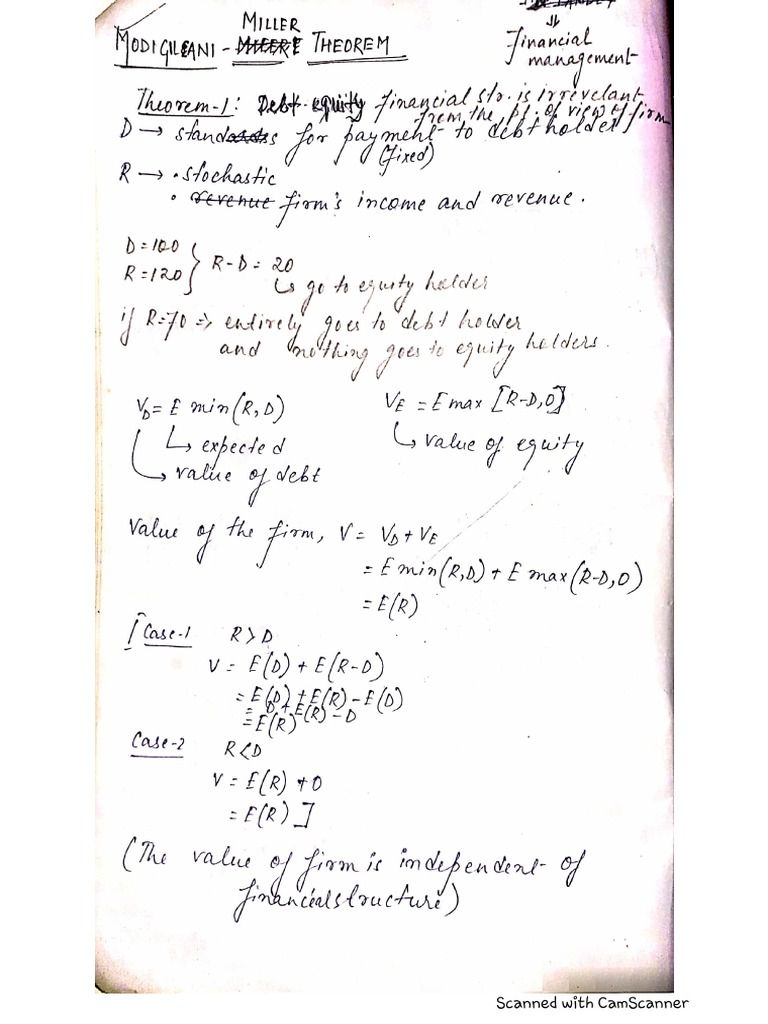 MILLER
MODIGILEANI - THEOREM
⇓
Financial
management
Theorem-1: Debt equity financial str. is irrevelant
from the pt. of view of firm
D → stands for payment to debt holder
(fixed)
R → • stochastic
• revenue firm's income and revenue.
D = 100
R = 120 } R-D = 20
↳ go to equity holder
if R=70 ⇒ entirely goes to debt holder
and nothing goes to equity holders.
V_D = E min(R, D)
V_E = E max [R-D, 0]
↳ expected
↳ value of debt
↳ value of equity
Value of the firm, V = V_D + V_E
= E min(R,D) + E max(R-D, 0)
= E(R)
[Case-1 R > D
V = E(D) + E(R-D)
= E(D) + E(R) - E(D)
= D + E(R) - D
= E(R)
Case-2 R < D
V = E(R) + 0
= E(R) ]
(The value of firm is independent of
financial structure)
Scanned with CamScanner